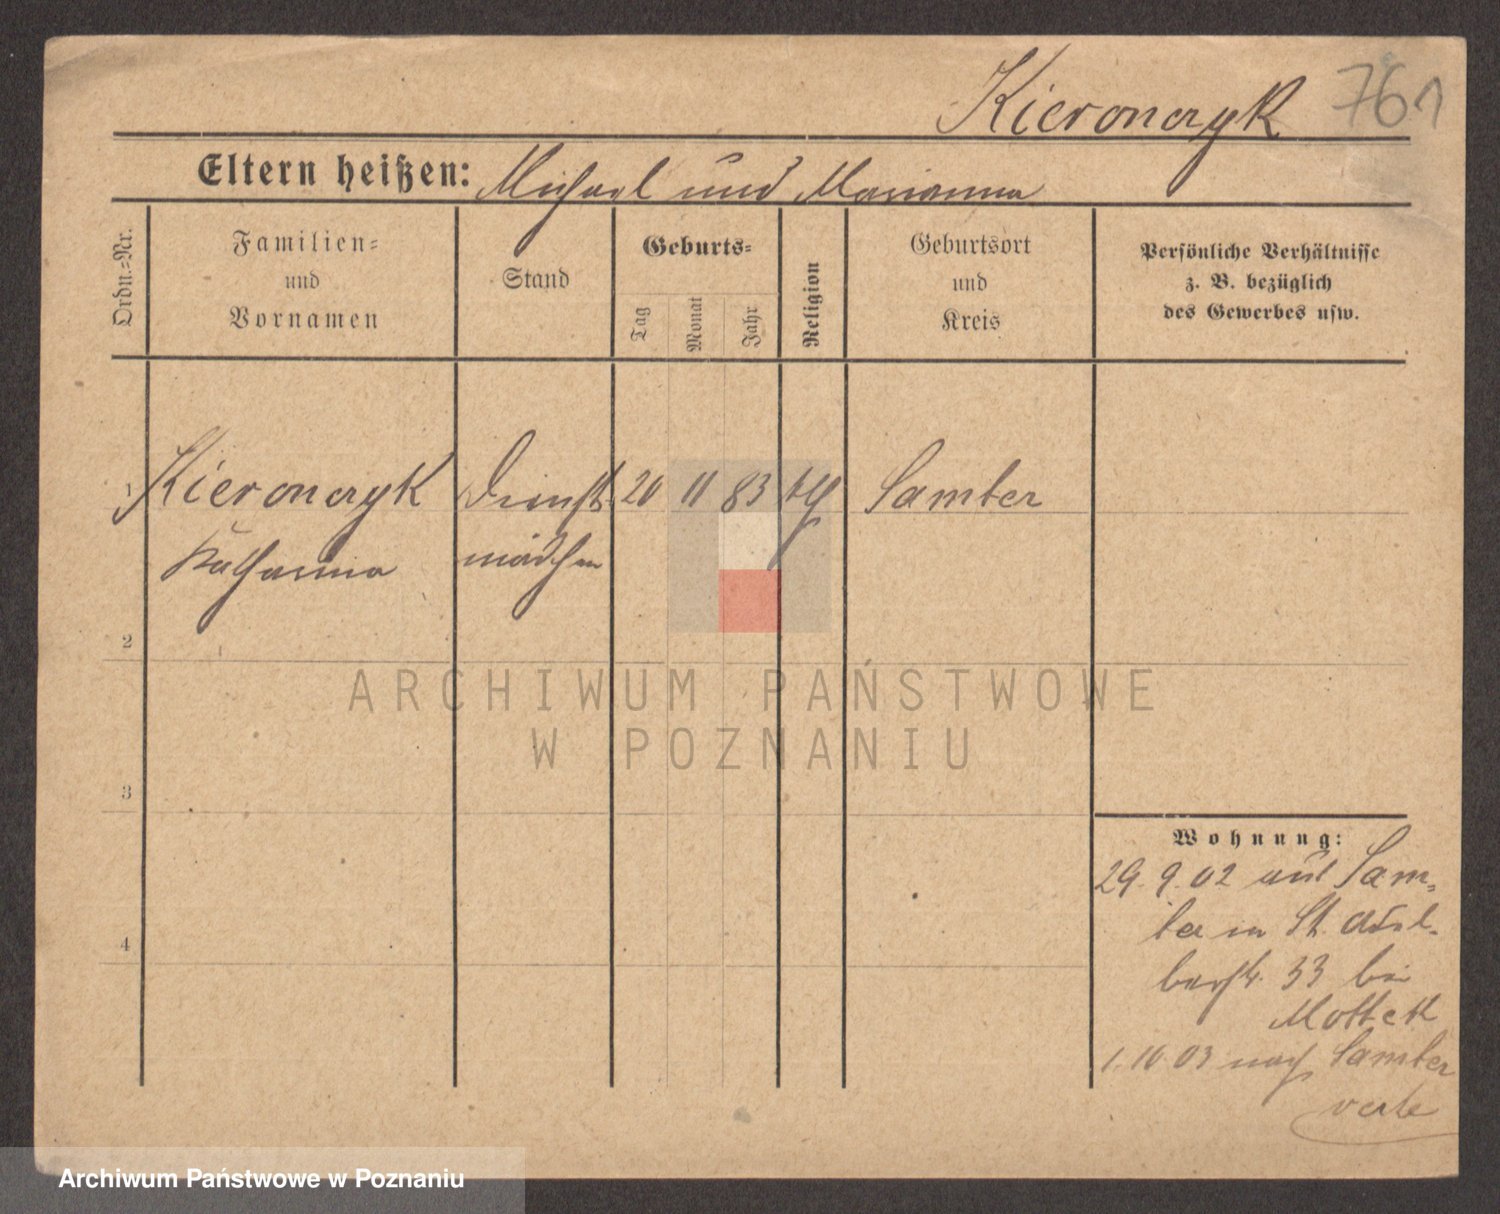 Kieronczyk 761
Eltern heißen: Michael und Marianna
Ordn.-Nr.
Familien-
und
Vornamen
Stand
Geburts-
Tag
Monat
Jahr
Religion
Geburtsort
und
Kreis
Persönliche Verhältnisse
z. B. bezüglich
des Gewerbes usw.
1 Kieronczyk Dienst 20 11 83 kth Samter
Katharina mädchen
2
3
4
Wohnung:
29. 9. 02 aus Sam-
ter in St. Adal-
bertstr. 33 bei
Mottek
1. 10 03 nach Samter
ARCHIWUM PAŃSTWOWE
W POZNANIU
Archiwum Państwowe w Poznaniu